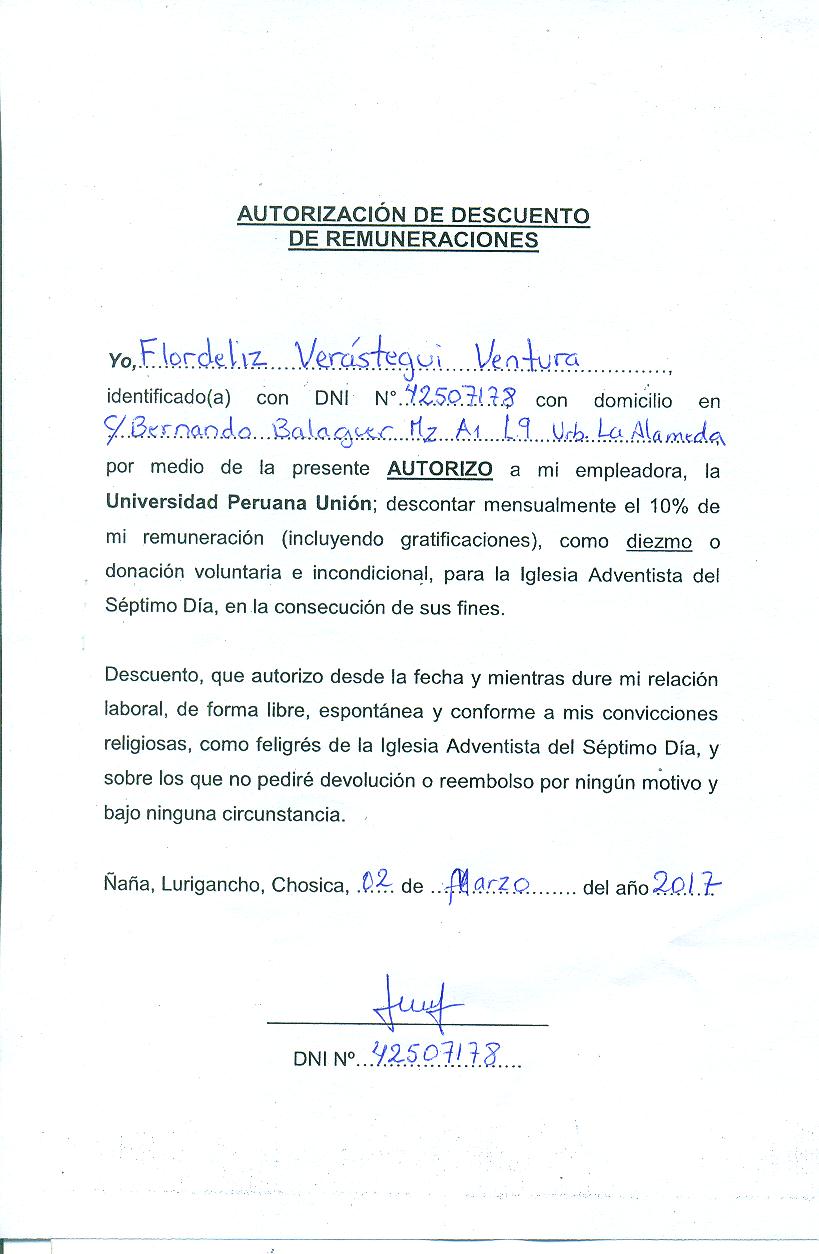 AUTORIZACIÓN DE DESCUENTO
DE REMUNERACIONES
Yo, Flordeliz Verástegui Ventura,
identificado(a) con DNI N° 42507178 con domicilio en
C/ Bernando Balaguer Mz A1 L9 Urb. La Alameda
por medio de la presente AUTORIZO a mi empleadora, la
Universidad Peruana Unión; descontar mensualmente el 10% de
mi remuneración (incluyendo gratificaciones), como diezmo o
donación voluntaria e incondicional, para la Iglesia Adventista del
Séptimo Día, en la consecución de sus fines.
Descuento, que autorizo desde la fecha y mientras dure mi relación
laboral, de forma libre, espontánea y conforme a mis convicciones
religiosas, como feligrés de la Iglesia Adventista del Séptimo Día, y
sobre los que no pediré devolución o reembolso por ningún motivo y
bajo ninguna circunstancia.
Ñaña, Lurigancho, Chosica, 02 de Marzo del año 2017
DNI Nº 42507178